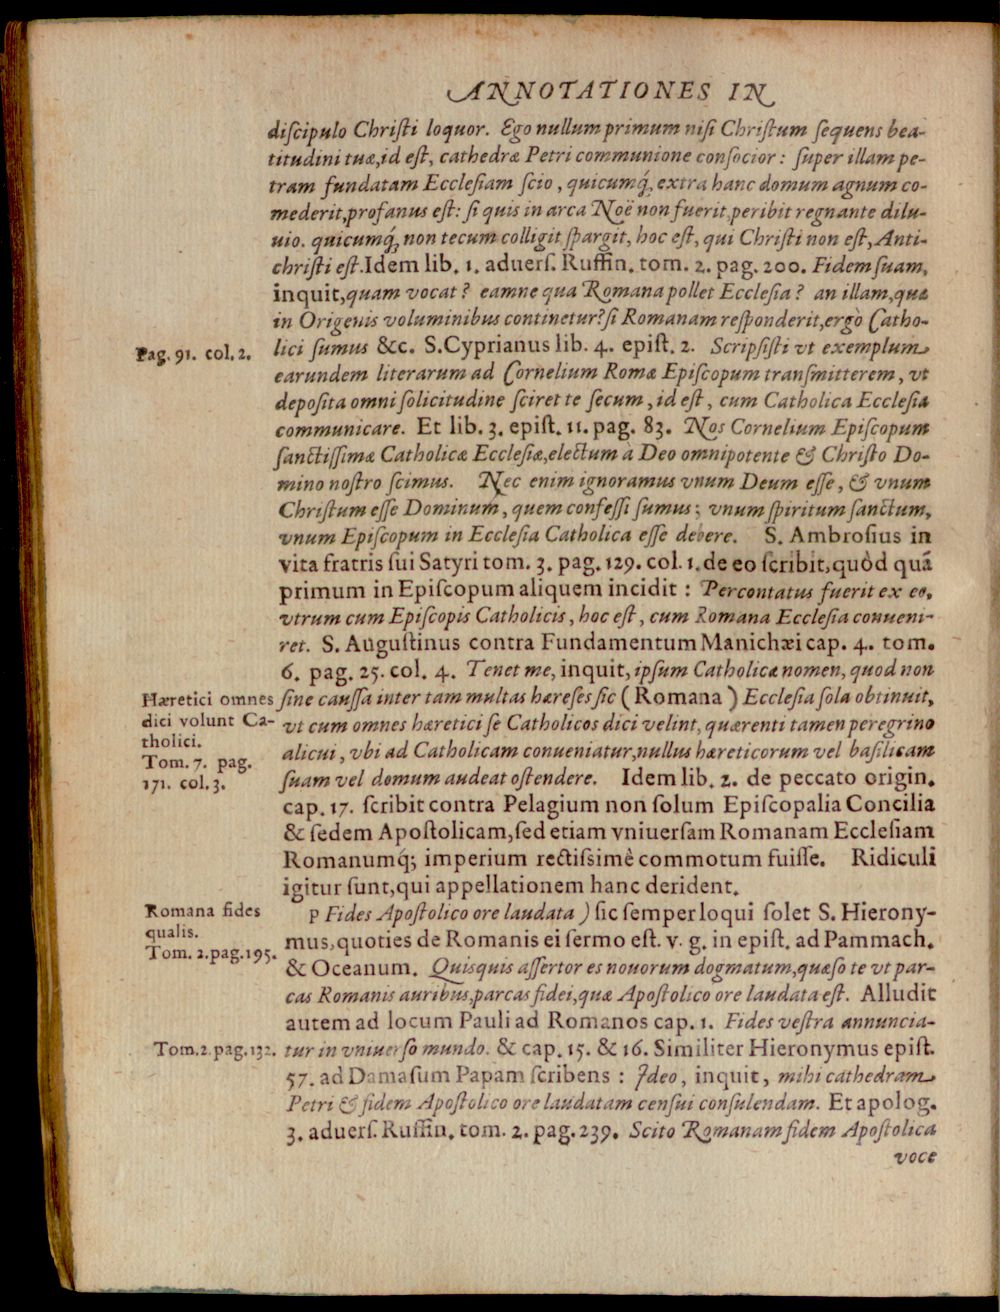 ANNOTATIONES IN
diſcipulo Chriſti loquor. Ego nullum primum niſi Chriſtum ſequens bea-
titudini tuæ,id eſt, cathedræ Petri communione conſocior: ſuper illam pe-
tram fundatam Eccleſiam ſcio, quicumq́, extra hanc domum agnum co-
mederit,profanus eſt: ſi quis in arca Noë non fuerit,peribit regnante dilu-
uio. quicumq́, non tecum colligit ſpargit, hoc eſt, qui Chriſti non eſt, Anti-
chriſti eſt.Idem lib. 1. aduerſ. Ruffin. tom. 2. pag. 200. Fidem ſuam,
inquit,quam vocat? eamne qua Romana pollet Eccleſia? an illam,quæ
in Origenis voluminibus continetur?ſi Romanam reſponderit,ergò Catho-
Pag. 91. col. 2.
lici ſumus &c. S.Cyprianus lib. 4. epiſt. 2. Scripſiſti vt exemplum
earundem literarum ad Cornelium Romæ Epiſcopum tranſmitterem, vt
depoſita omni ſolicitudine ſciret te ſecum, id eſt, cum Catholica Eccleſia
communicare. Et lib. 3. epiſt. 11. pag. 83. Nos Cornelium Epiſcopum
ſanctiſſimæ Catholicæ Eccleſiæ,electum à Deo omnipotente & Chriſto Do-
mino noſtro ſcimus. Nec enim ignoramus vnum Deum eſſe, & vnum
Chriſtum eſſe Dominum, quem confeſſi ſumus; vnum ſpiritum ſanctum,
vnum Epiſcopum in Eccleſia Catholica eſſe debere. S. Ambroſius in
vita fratris ſui Satyri tom. 3. pag. 129. col. 1. de eo ſcribit, quòd quã
primum in Epiſcopum aliquem incidit : Percontatus fuerit ex eo,
vtrum cum Epiſcopis Catholicis, hoc eſt, cum Romana Eccleſia conueni-
ret. S. Auguſtinus contra Fundamentum Manichæi cap. 4. tom.
6. pag. 25. col. 4. Tenet me, inquit, ipſum Catholicæ nomen, quod non
Hæretici omnes
dici volunt Ca-
tholici.
Tom. 7. pag.
171. col. 3.
ſine cauſſa inter tam multas hæreſes ſic (Romana) Eccleſia ſola obtinuit,
vt cum omnes hæretici ſe Catholicos dici velint, quærenti tamen peregrino
alicui, vbi ad Catholicam conueniatur,nullus hæreticorum vel baſilicam
ſuam vel domum audeat oſtendere. Idem lib. 2. de peccato origin.
cap. 17. ſcribit contra Pelagium non ſolum Epiſcopalia Concilia
& ſedem Apoſtolicam, ſed etiam vniuerſam Romanam Eccleſiam
Romanumq́; imperium rectiſsimè commotum fuiſſe. Ridiculi
igitur ſunt, qui appellationem hanc derident.
Romana fides
qualis.
Tom. 2. pag. 195.
p Fides Apoſtolico ore laudata) ſic ſemper loqui ſolet S. Hierony-
mus, quoties de Romanis ei ſermo eſt. v. g. in epiſt. ad Pammach.
& Oceanum. Quisquis aſſertor es nouorum dogmatum, quæſo te vt par-
cas Romanis auribus, parcas fidei, quæ Apoſtolico ore laudata eſt. Alludit
autem ad locum Pauli ad Romanos cap. 1. Fides veſtra annuncia-
Tom. 2. pag. 132.
tur in vniuerſo mundo. & cap. 15. & 16. Similiter Hieronymus epiſt.
57. ad Damaſum Papam ſcribens : Ideo, inquit, mihi cathedram
Petri & fidem Apoſtolico ore laudatam cenſui conſulendam. Et apolog.
3. aduerſ. Ruffin. tom. 2. pag. 239. Scito Romanam fidem Apoſtolica
voce